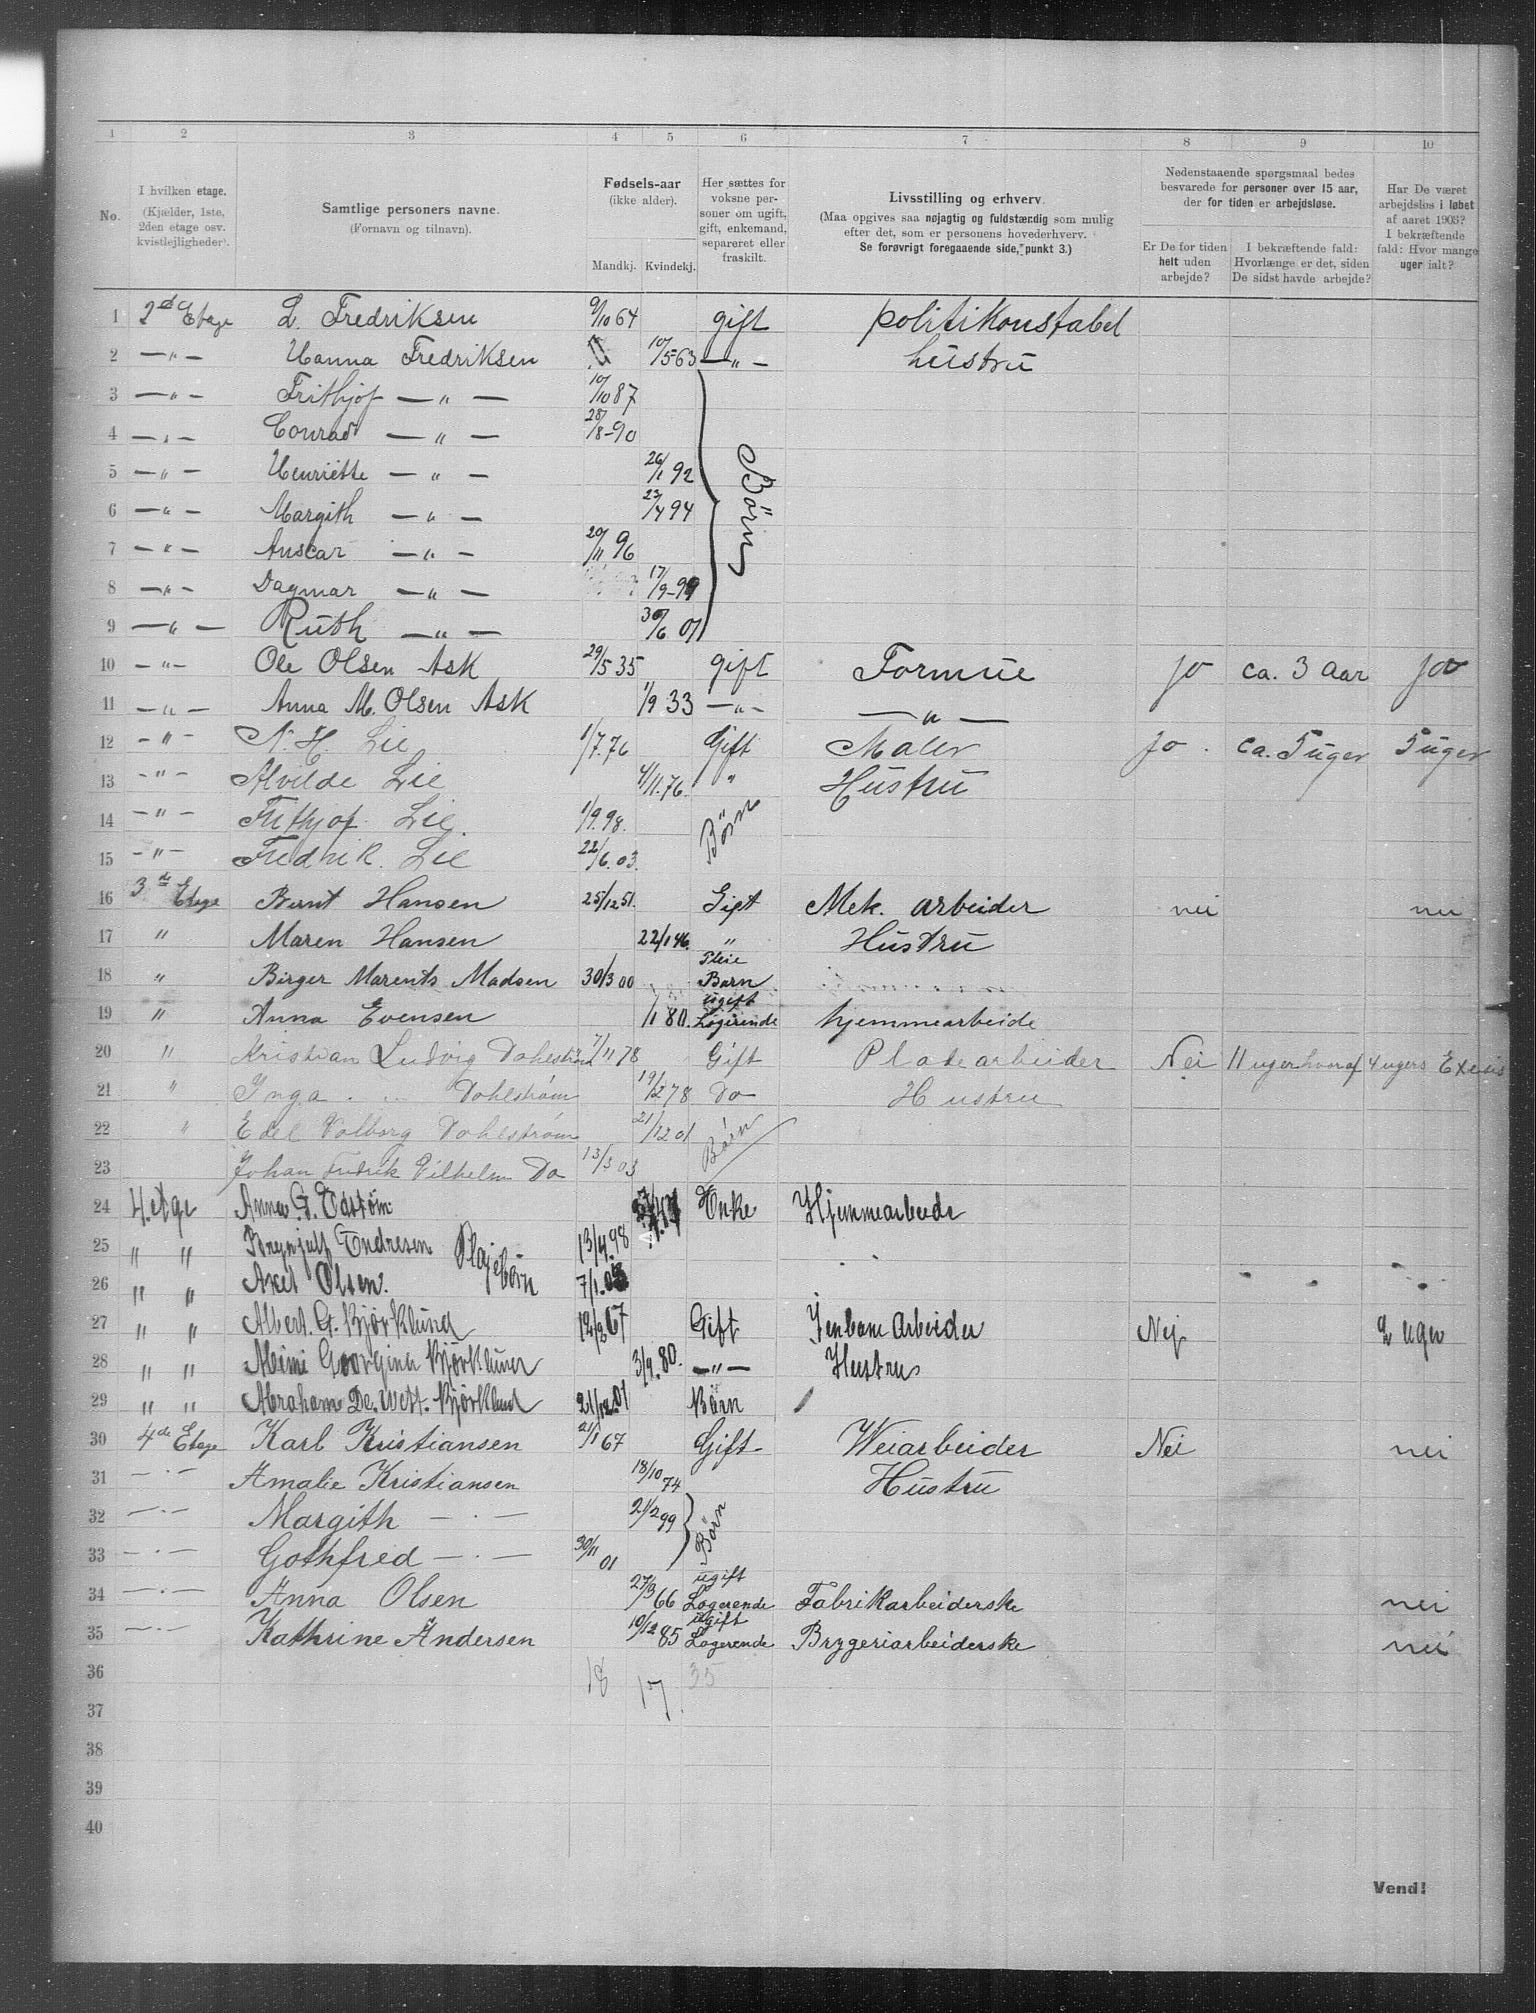 1 2 3 4 5 6 7 8 9 10
No. | I hvilken etage. (Kjælder, 1ste, 2den etage osv. kvistlejligheder). | Samtlige personers navne. (Fornavn og tilnavn). | Fødsels-aar (ikke alder). Mandkj. Kvindekj. | Her sættes for voksne per- soner om ugift, gift, enkemand, separeret eller fraskilt. | Livsstilling og erhverv. (Maa opgives saa nøjagtig og fuldstærdig som mulig efter det, som er personens hovederhverv. Se forøvrigt foregaaende side, punkt 3.) | Nedenstaaende spørgsmaal bedes besvarede for personer over 15 aar, der for tiden er arbejdsløse. Er De for tiden helt uden arbejde? | I bekræftende fald: Hvorlænge er det, siden De sidst havde arbejde? | Har De været arbejdsløs i løbet af aaret 1903? I bekræftende fald: Hvor mange uger ialt?
1 2d Etage L. Fredriksen 9/10 64 gift politikonstabel
2 — " — Hanna Fredriksen 10/5-63 — " — hustru
3 — " — Frithjof — " — 10/10 87
4 — " — Conrad — " — 28/8-90
5 — " — Henriette — " — 26/1 92 Börn
6 — " — Margith — " — 23/4 94
7 — " — Anscar — " — 20/11 96
8 — " — Dagmar — " — 17/9-99
9 — " — Ruth — " — 30/6 01
10 — " — Ole Olsen Ask 29/5 35 gift Formue jo ca. 3 aar jo
11 — " — Anna M. Olsen Ask 1/9 33 — " — — " —
12 — " — N. H. Lie 1/7.76 Gift Maler Jo. ca. 5 uger 5 uger
13 — " — Alvilde Lie 4/11.76. " Hustru
14 — " — Frithjof Lie. 1/9.98. Börn
15 — " — Fredrik. Lie 22/6.03.
16 3de Etage Bernt Hansen 25/12 51. Gift Mek. arbeider nei nei
17 " Maren Hansen 22/1 46. " Hustru
18 " Birger Marents Madsen 30/3 00 Pleie Barn
19 " Anna Evensen 1/1 80. ugift Logerende hjemmearbeide
20 " Kristian Ludvig Dohlström 7/11 78 Gift Pladearbeider Nei 11 uger hvoraf 4 ugers
21 " Inga . „ Dohlström 19/2 78 Do Hustru
22 " Edel Valborg Dohlström 21/12 01 Börn
23 Johan Fredrik Vilhelm Do 13/3 03
24 4. etge Anna G. Edström Enke Hjemmearbeide
25 " " Brynjulf Endresen Plejebörn 13/4.98
26 " " Axel Olsen. 7/1.
27 " " Albert. G. Björklund 67 Gift Jenbane Arbeider Nej 2 uger
28 " " Mimi Georgine Björklund 3/9.80. — " — Hustru
29 " " Abraham De. Wett. Björklund 21/12.01 Börn
30 4de Etage Karl Kristiansen 21/1 67 Gift Veiarbeider Nei nei
31 — · — Amalie Kristiansen 18/10 74 Hustru
32 — · — Margith — · — 21/2 99 Börn
33 — · — Gothfred — · — 30/11 01
34 — · — Anna Olsen 27/3 66 ugift Logerende Fabrikarbeiderske nei
35 — · — Kathrine Andersen 10/12 85 ugift Logerende Brygeriarbeiderske nei
36 18 17 35
37
38
39
40
Vend!